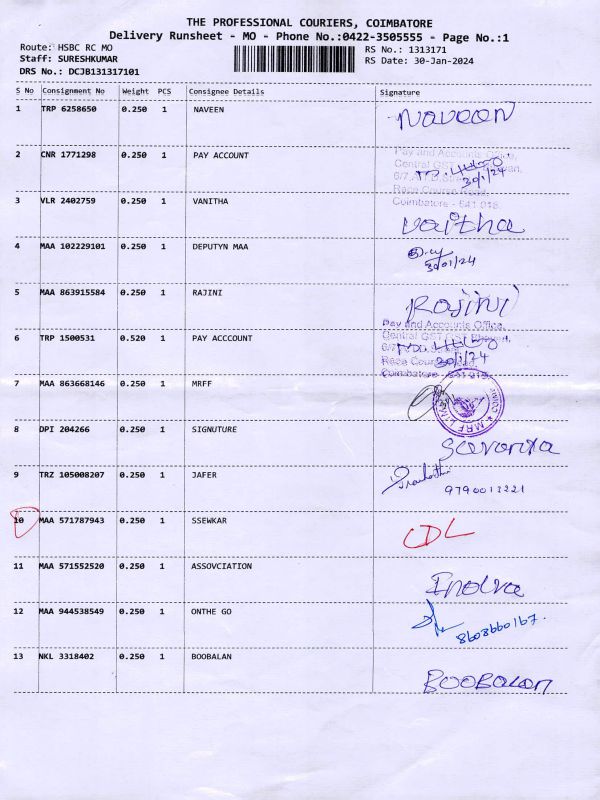 THE PROFESSIONAL COURIERS, COIMBATORE
Delivery Runsheet - MO - Phone No.:0422-3505555 - Page No.:1
Route: HSBC RC MO
RS No.: 1313171
Staff: SURESHKUMAR
RS Date: 30-Jan-2024
DRS No.: DCJB131317101
S No Consignment No Weight PCS Consignee Details Signature
1 TRP 6258650 0.250 1 NAVEEN Naveen
2 CNR 1771298 0.250 1 PAY ACCOUNT
Pay and Accounts Office,
Central GST
30/1/24
Race Course
Coimbatore - 641 018.
3 VLR 2402759 0.250 1 VANITHA Vaitha
4 MAA 102229101 0.250 1 DEPUTYN MAA
30/01/24
5 MAA 863915584 0.250 1 RAJINI Rajini
Pay and Accounts Office,
6 TRP 1500531 0.520 1 PAY ACCCOUNT Central GST
30/1/24
Race Course
Coimbatore - 641 018.
7 MAA 863668146 0.250 1 MRFF
MRF LIMITED
8 DPI 204266 0.250 1 SIGNUTURE
9 TRZ 105008207 0.250 1 JAFER
9790013221
10 MAA 571787943 0.250 1 SSEWKAR CDL
11 MAA 571552520 0.250 1 ASSOVCIATION Indra
12 MAA 944538549 0.250 1 ONTHE GO
8608660167.
13 NKL 3318402 0.250 1 BOOBALAN BOOBALAN